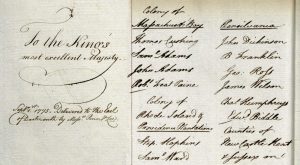 To the King's
most excellent Majesty.
Sept. 1775. Delivered to the Earl
of Dartmouth by Messrs Penn & Lee
Colony of
Massachusets Bay
Thomas Cushing
Saml Adams
John Adams
Robt Treat Paine
Colony of
Rhode Island &
Providence Plantations
Step Hopkins
Saml Ward
Pensilvania
John Dickinson
B Franklin
Geo. Ross
James Wilson
Chas Humphreys
Edwd Biddle
Counties of
New Castle Kent
& Sussex on